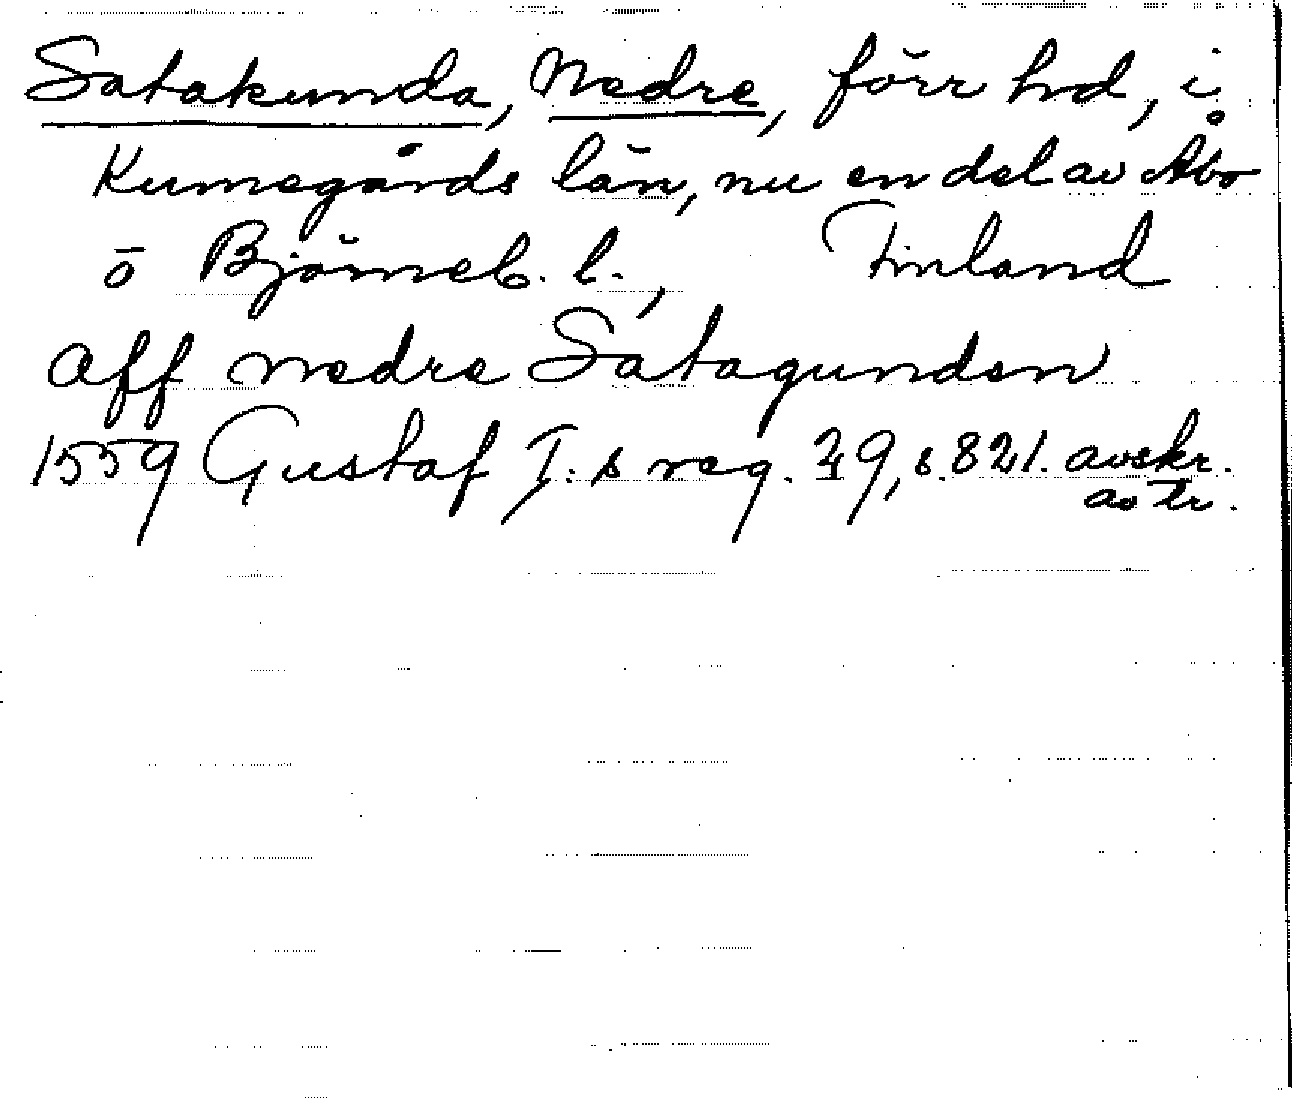 Satakunda, Nedre, förr hd, i
Kumogårds län, nu en del av Åbo
o Björneb. l., Finland
Aff nedre Satagunden
1559 Gustaf I:s reg. 29, s. 821. avskr.
av tr.